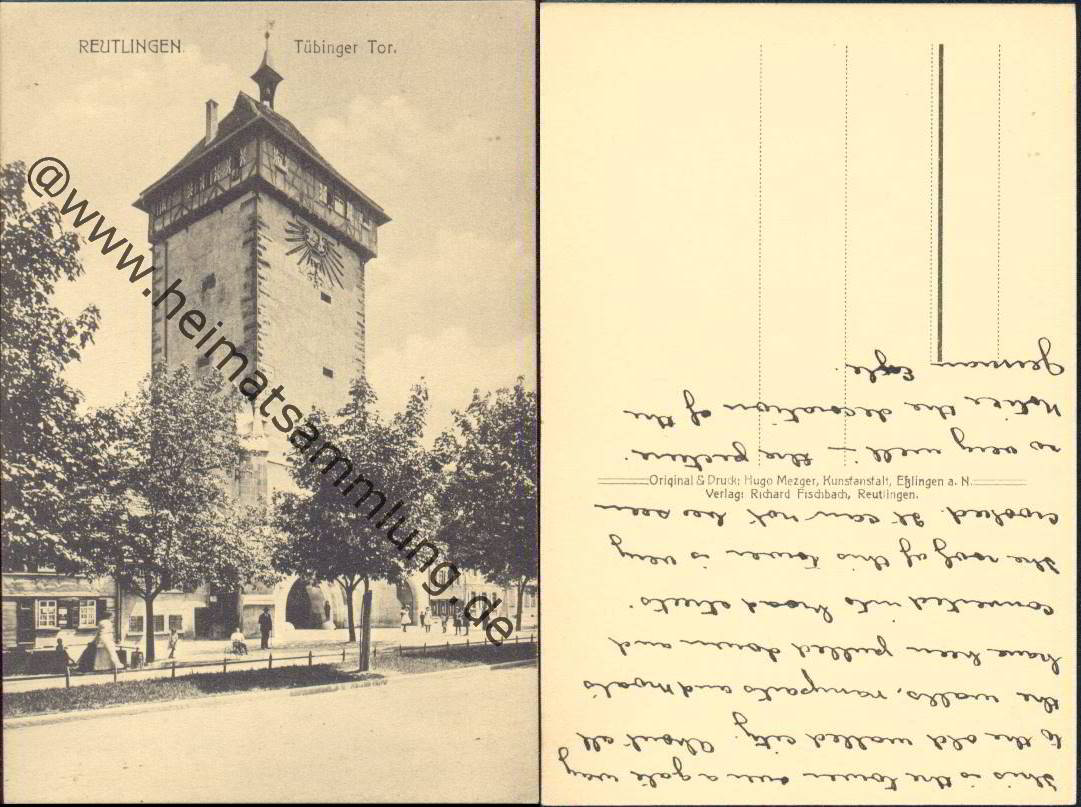 REUTLINGEN. Tübinger Tor.
@www.heimatsammlung.de
This is the tower over a gate way
to the old walled city. About all
the walls, ramparts and moats
have been pulled down and
converted into broad streets.
The roof of this tower is very
crooked. It can not be seen
so very well – the picture.
Notice the decoration of the
German Eagle.
Original & Druck: Hugo Mezger, Kunstanstalt, Eßlingen a. N.
Verlag: Richard Fischbach, Reutlingen.